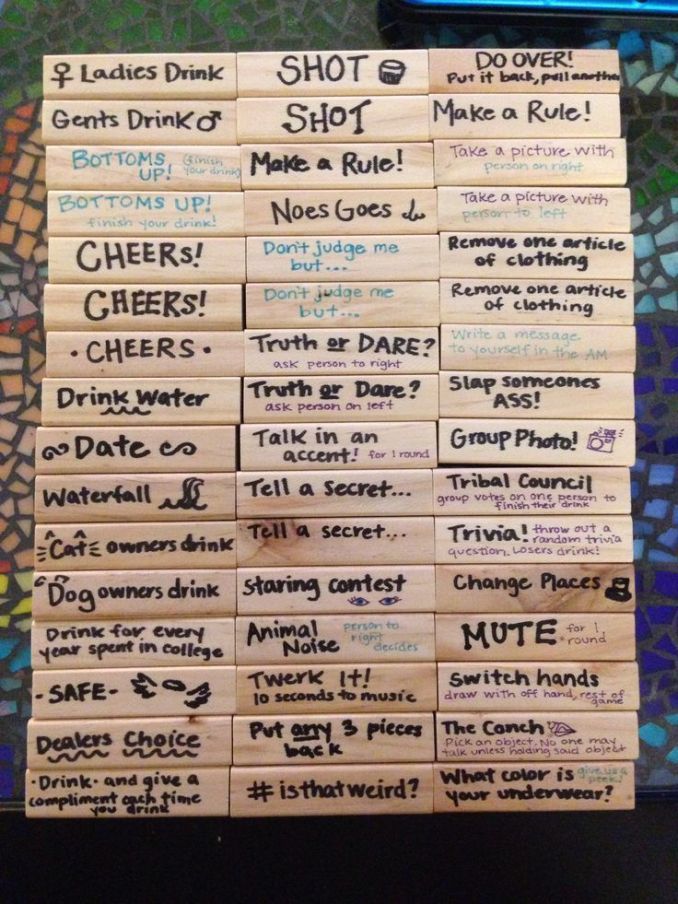 ♀ Ladies Drink
Gents Drink ♂
BOTTOMS UP! (finish your drink)
BOTTOMS UP!
finish your drink!
CHEERS!
CHEERS!
• CHEERS •
Drink Water
Date
Waterfall
Cat owners drink
Dog owners drink
Drink for every
year spent in college
- SAFE -
Dealers Choice
• Drink • and give a
compliment each time
you drink
SHOT
SHOT
Make a Rule!
Noes Goes
Don't judge me
but...
Don't judge me
but...
Truth or DARE?
ask person to right
Truth or Dare?
ask person on left
Talk in an
accent! for 1 round
Tell a secret...
Tell a secret...
Staring contest
Animal
Noise
person to
right
decides
Twerk It!
10 seconds to music
Put any 3 pieces
back
# isthatweird?
DO OVER!
Put it back, pull another
Make a Rule!
Take a picture with
person on right
Take a picture with
person to left
Remove one article
of clothing
Remove one article
of clothing
Write a message
to yourself in the AM
Slap someones
ASS!
Group Photo!
Tribal Council
group votes on one person to
finish their drink
Trivia! throw out a
random trivia
question. Losers drink!
Change Places
MUTE for 1
round
Switch hands
draw with off hand, rest of
game
The Conch
Pick an object. No one may
talk unless holding said object
What color is
your underwear?
give us a
peek!